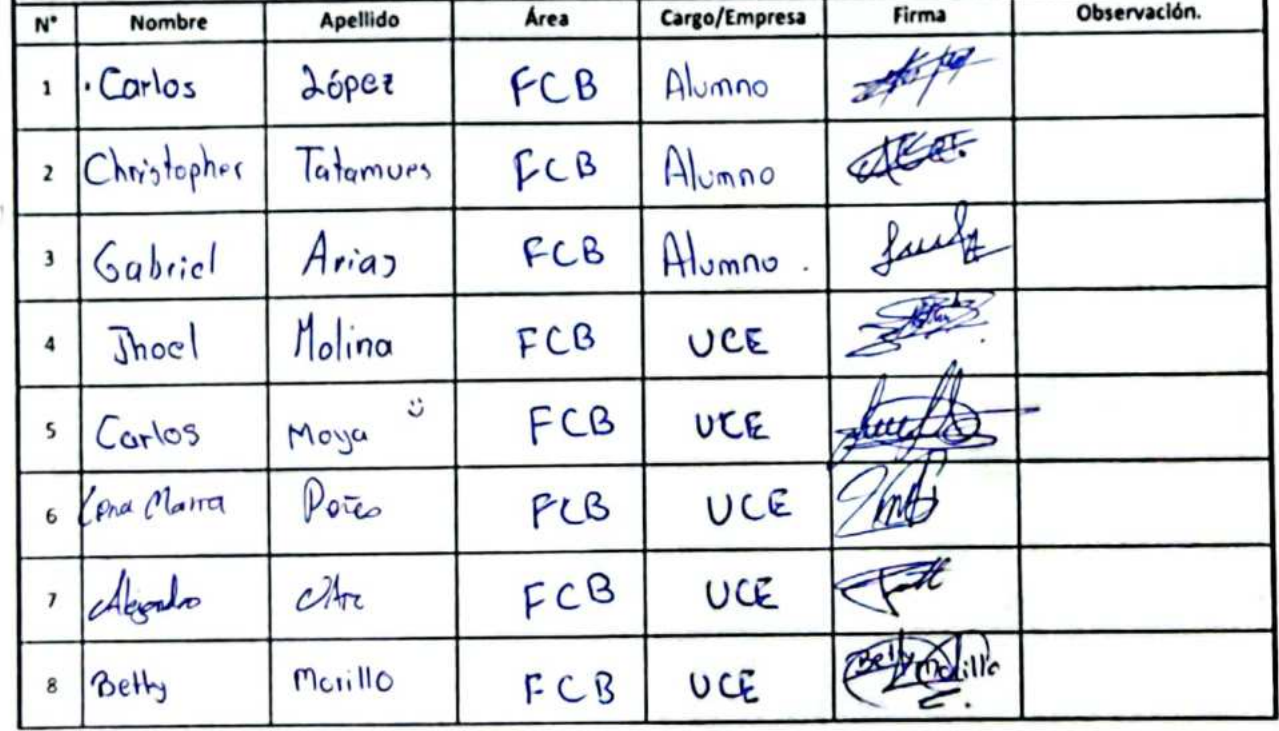 N° Nombre Apellido Área Cargo/Empresa Firma Observación.
1 Carlos López FCB Alumno
2 Christopher Tatamues FCB Alumno
3 Gabriel Arias FCB Alumno.
4 Jhoel Molina FCB UCE
5 Carlos Moya FCB UCE
6 FCB UCE
7 Alejandro FCB UCE
8 Betty Morillo FCB UCE Betty Morillo